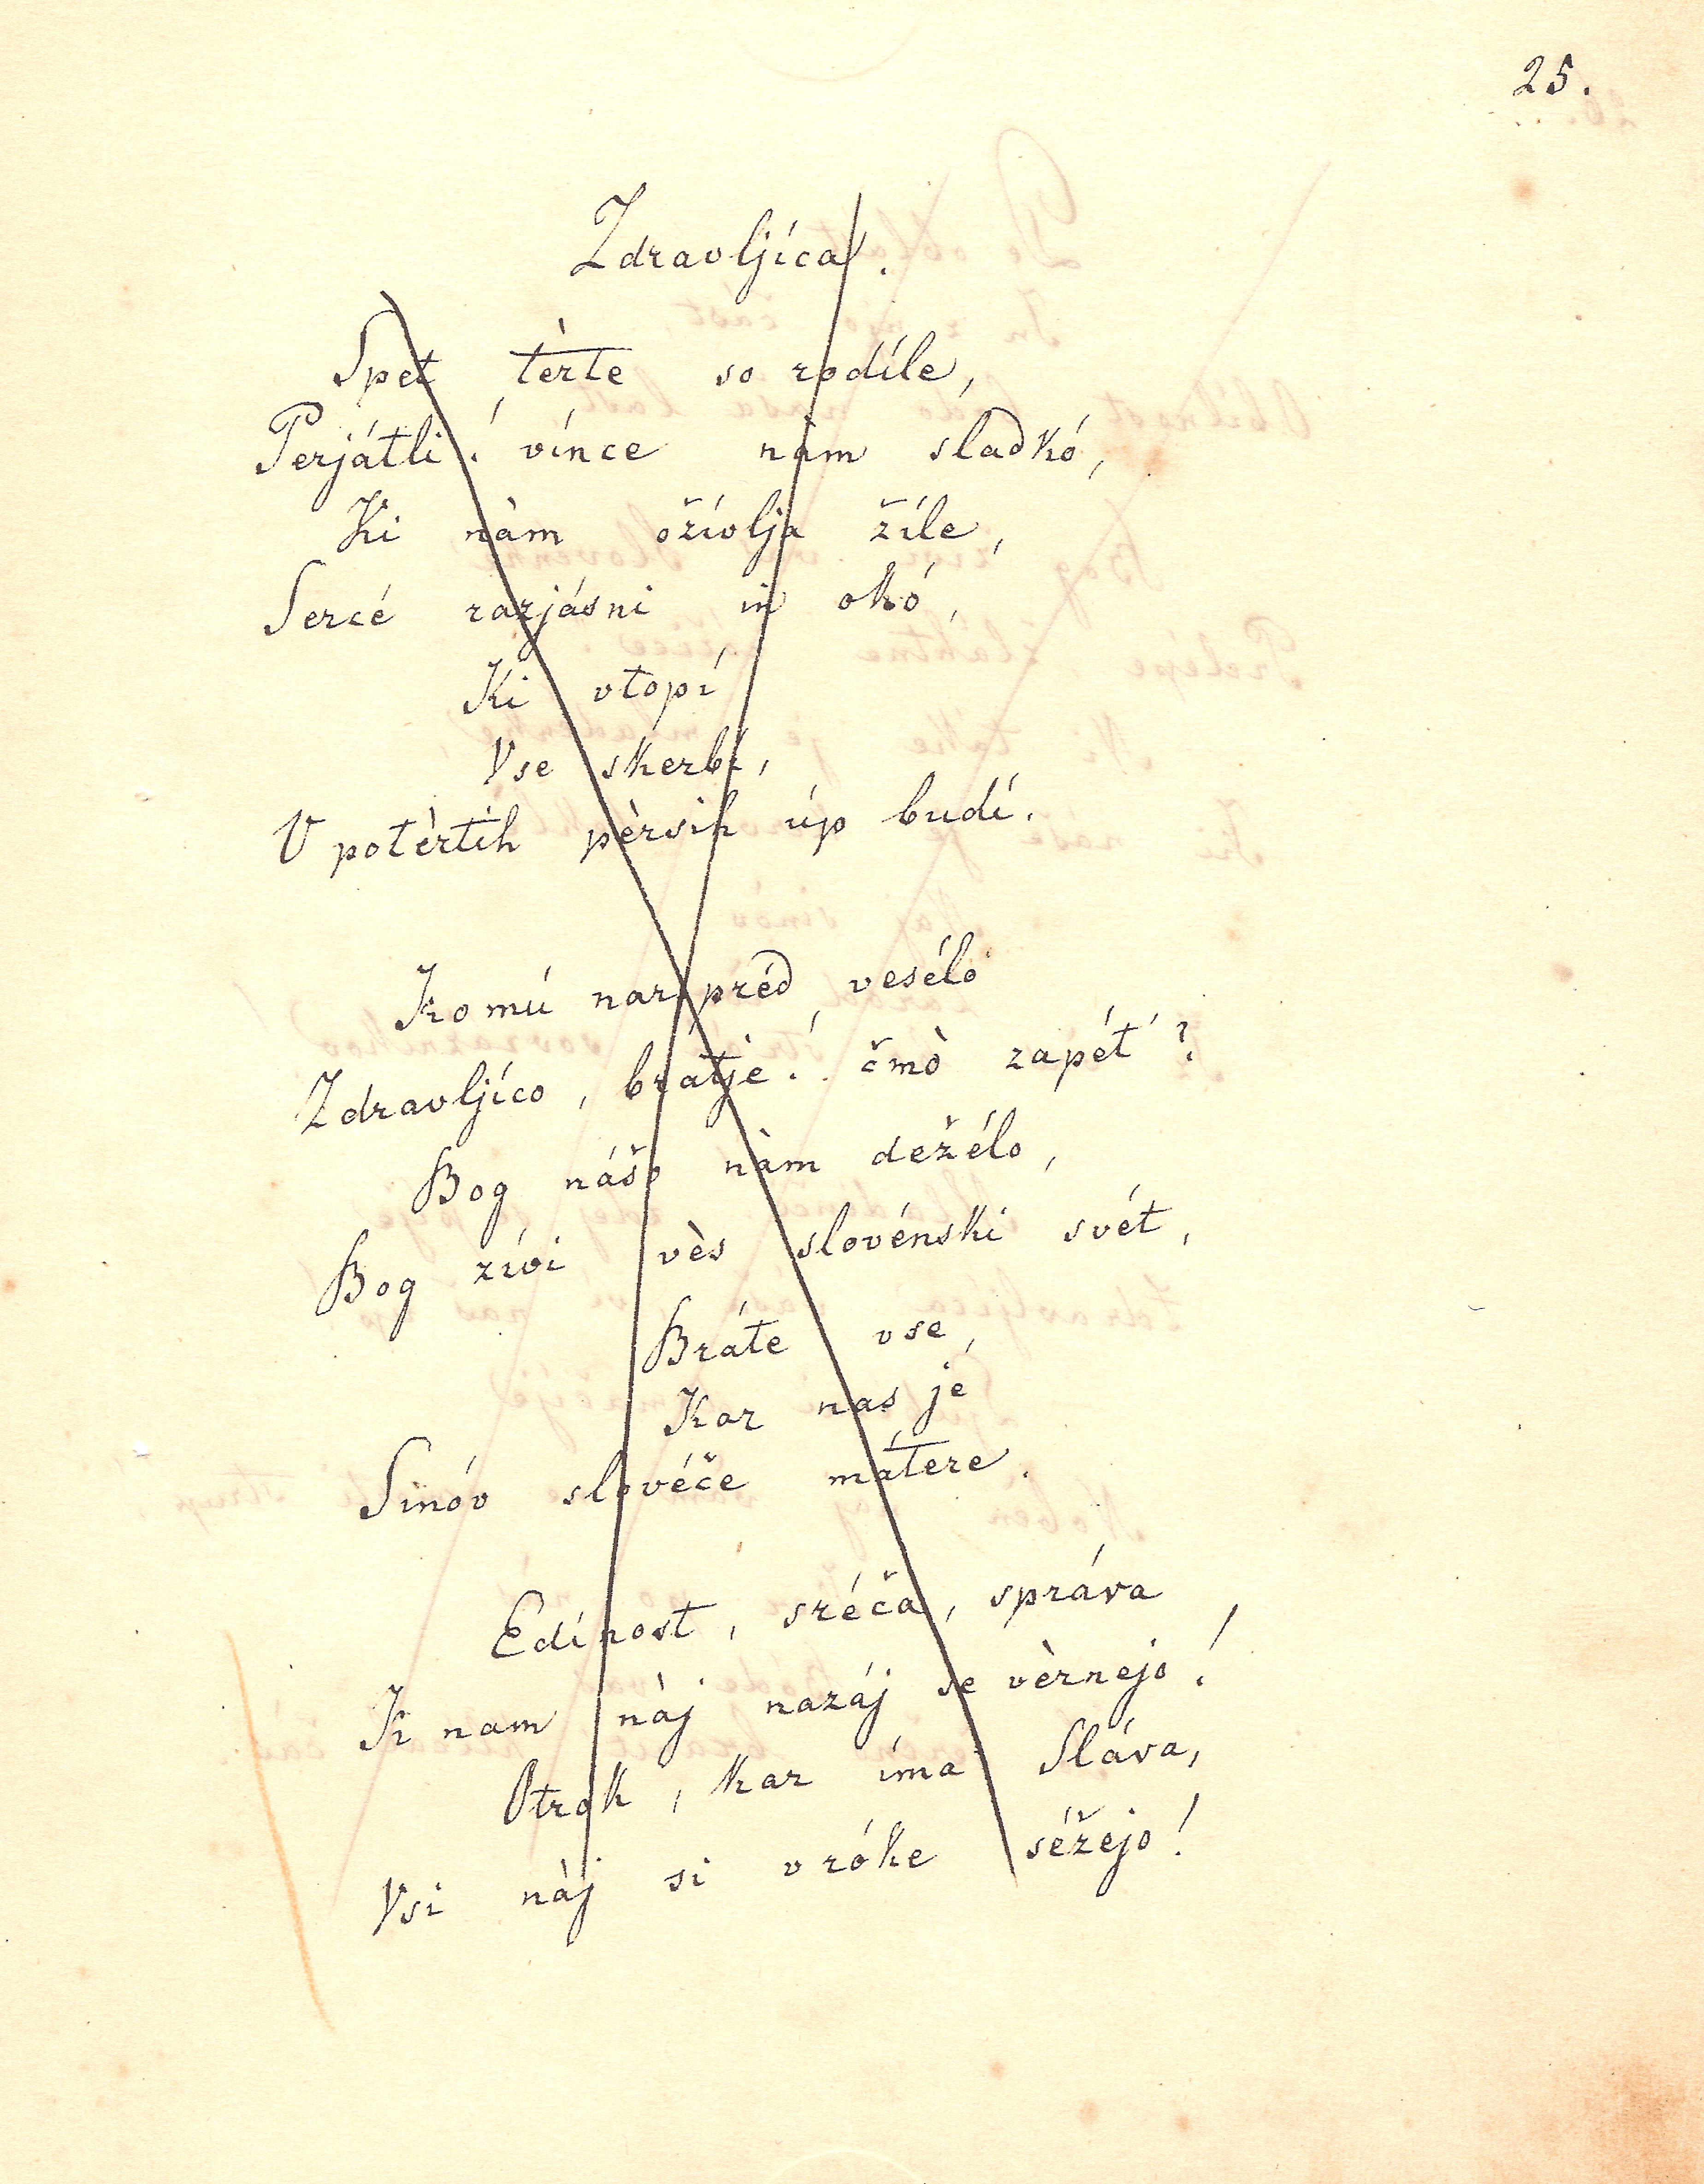 25.
Zdravljíca.
Spet tèrte so rodíle,
Perjátli! vínce nàm sladkó,
Ki nàm ožívlja žíle,
Sercé razjásni in okó,
Ki vtopí
Vse skerbí,
V potèrtih pèrsih úp budí.
Komú narpréd vesélo
Zdravljíco, brátje! čmò zapét'?
Bog nášo nàm dežélo,
Bog živi vès slovénski svét,
Bráte vse,
Kar nas jé
Sinóv slovéče mátere.
Edínost, sréča, správa
K nam nàj nazáj se vèrnejo!
Otrok, kar íma Sláva,
Vsi nàj si v róke séžejo!